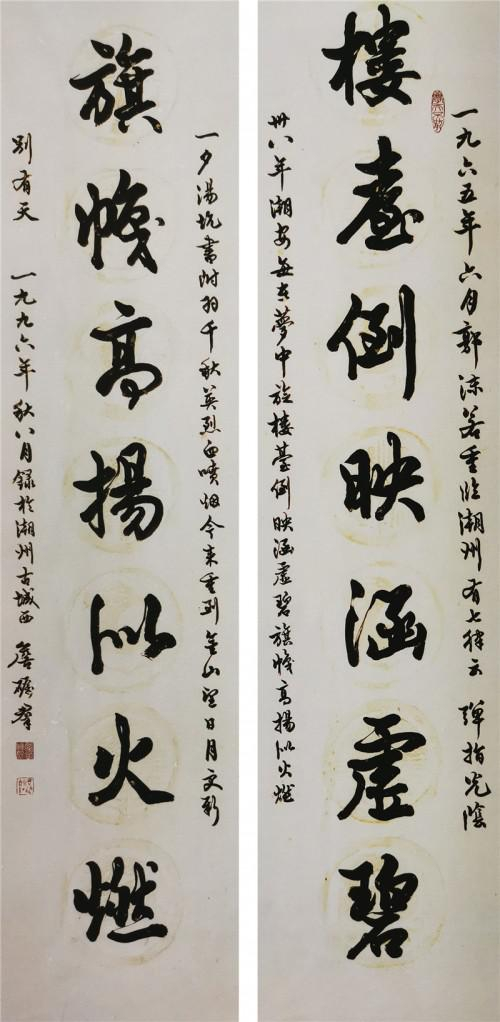 一九六五年六月郭沫若重临潮州有七律云 弹指光陰
樓臺倒映涵虛碧
卅八年潮安每在夢中旋樓臺倒映涵虛碧旗幟高揚似火燃
一夕湯坑書附羽千秋英烈血噴烟今来重到金山望日月更新
旗幟高揚似火燃
別有天 一九九六年秋八月録於潮州古城西 詹礪群